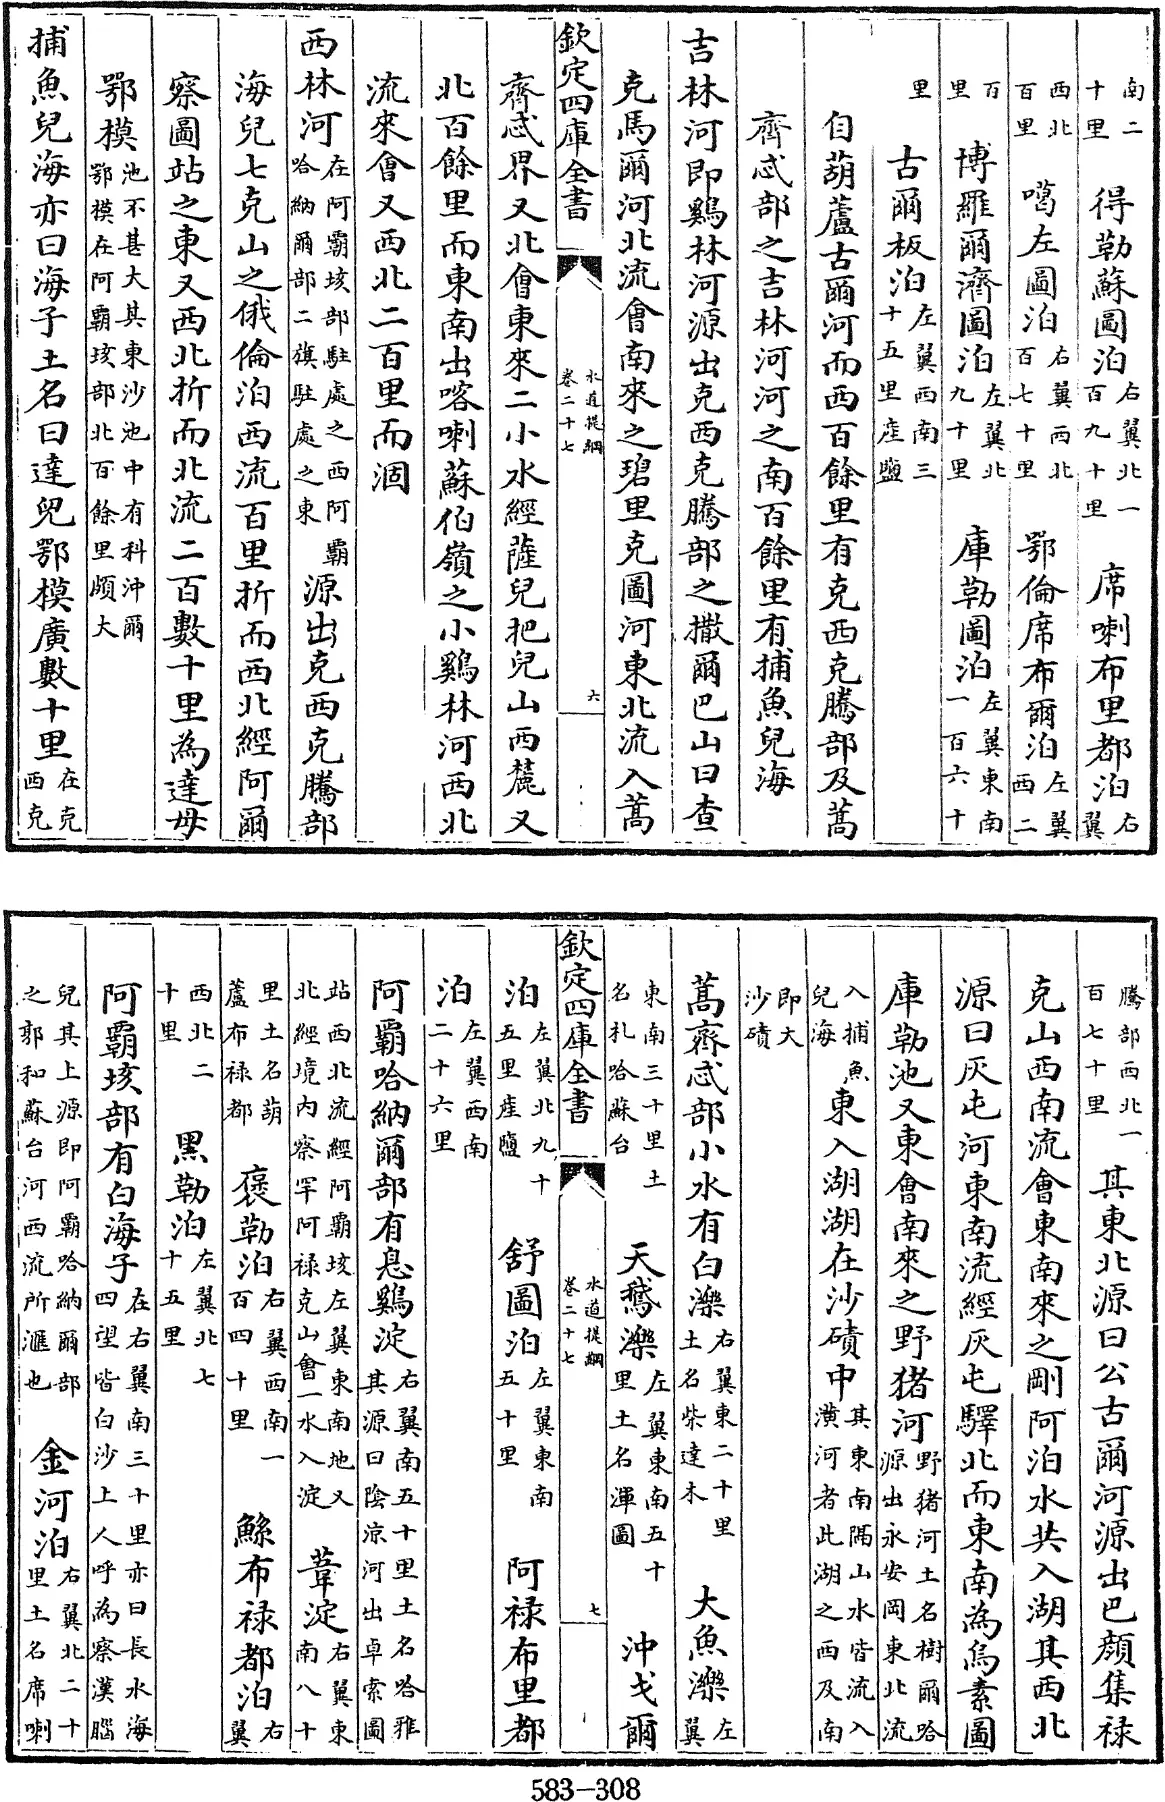 南二十里 得勒蘇圖泊右翼北一百九十里 席喇布里都泊右翼
西北百里 噶左圖泊右翼西北百七十里 鄂倫席布爾泊左翼西二
百里 博羅爾濟圖泊左翼北九十里 庫勒圖泊左翼東南一百六十
里 古爾板泊左翼西南三十五里産鹽
自葫蘆古爾河而西百餘里有克西克騰部及蒿
齊忒部之吉林河河之南百餘里有捕魚兒海
吉林河即鷄林河源出克西克騰部之撒爾巴山曰查
克馬爾河北流會南來之碧里克圖河東北流入蒿
欽定四庫全書 水道提綱 卷二十七 六
齊忒界又北會東來二小水經薩兒把兒山西麓又
北百餘里而東南出喀喇蘇伯嶺之小鷄林河西北
流來會又西北二百里而涸
西林河在阿霸垓部駐處之西阿霸哈納爾部二旗駐處之東源出克西克騰部
海兒七克山之俄倫泊西流百里折而西北經阿爾
察圖站之東又西北折而北流二百數十里為達母
鄂模池不甚大其東沙池中有科沖爾鄂模在阿霸垓部北百餘里頗大
捕魚兒海亦曰海子土名曰達兒鄂模廣數十里在克西克
騰部西北一百七十里其東北源曰公古爾河源出巴顔集禄
克山西南流會東南來之剛阿泊水共入湖其西北
源曰灰屯河東南流經灰屯驛北而東南為烏素圖
庫勒池又東會南來之野猪河野猪河土名樹爾哈源出永安岡東北流
入捕魚兒海東入湖湖在沙磧中其東南隅山水皆流入潢河者此湖之西及南
即大沙磧
蒿齊忒部小水有白濼右翼東二十里土名柴達木 大魚濼左翼
東南三十里土名札哈蘇台 天鵝濼左翼東南五十里土名渾圖 沖戈爾
欽定四庫全書 水道提綱 卷二十七 七
泊左翼北九十五里産鹽 舒圖泊左翼東南五十里 阿禄布里都
泊左翼西南二十六里
阿霸哈納爾部有息鷄淀右翼南五十里土名哈雅其源曰陰凉河出卓索圖
站西北流經阿霸垓左翼東南地又北經境内察罕阿禄克山會一水入淀 葦淀右翼東南八十
里土名葫蘆布禄都 褒勒泊右翼西南一百四十里 鯀布禄都泊右翼
西北二十里 黑勒泊左翼北七十五里
阿霸垓部有白海子在右翼南三十里亦曰長水海四望皆白沙上人呼為察漢腦
兒其上源即阿霸哈納爾部之郭和蘇台河西流所滙也 金河泊右翼北二十里土名席喇
583-308